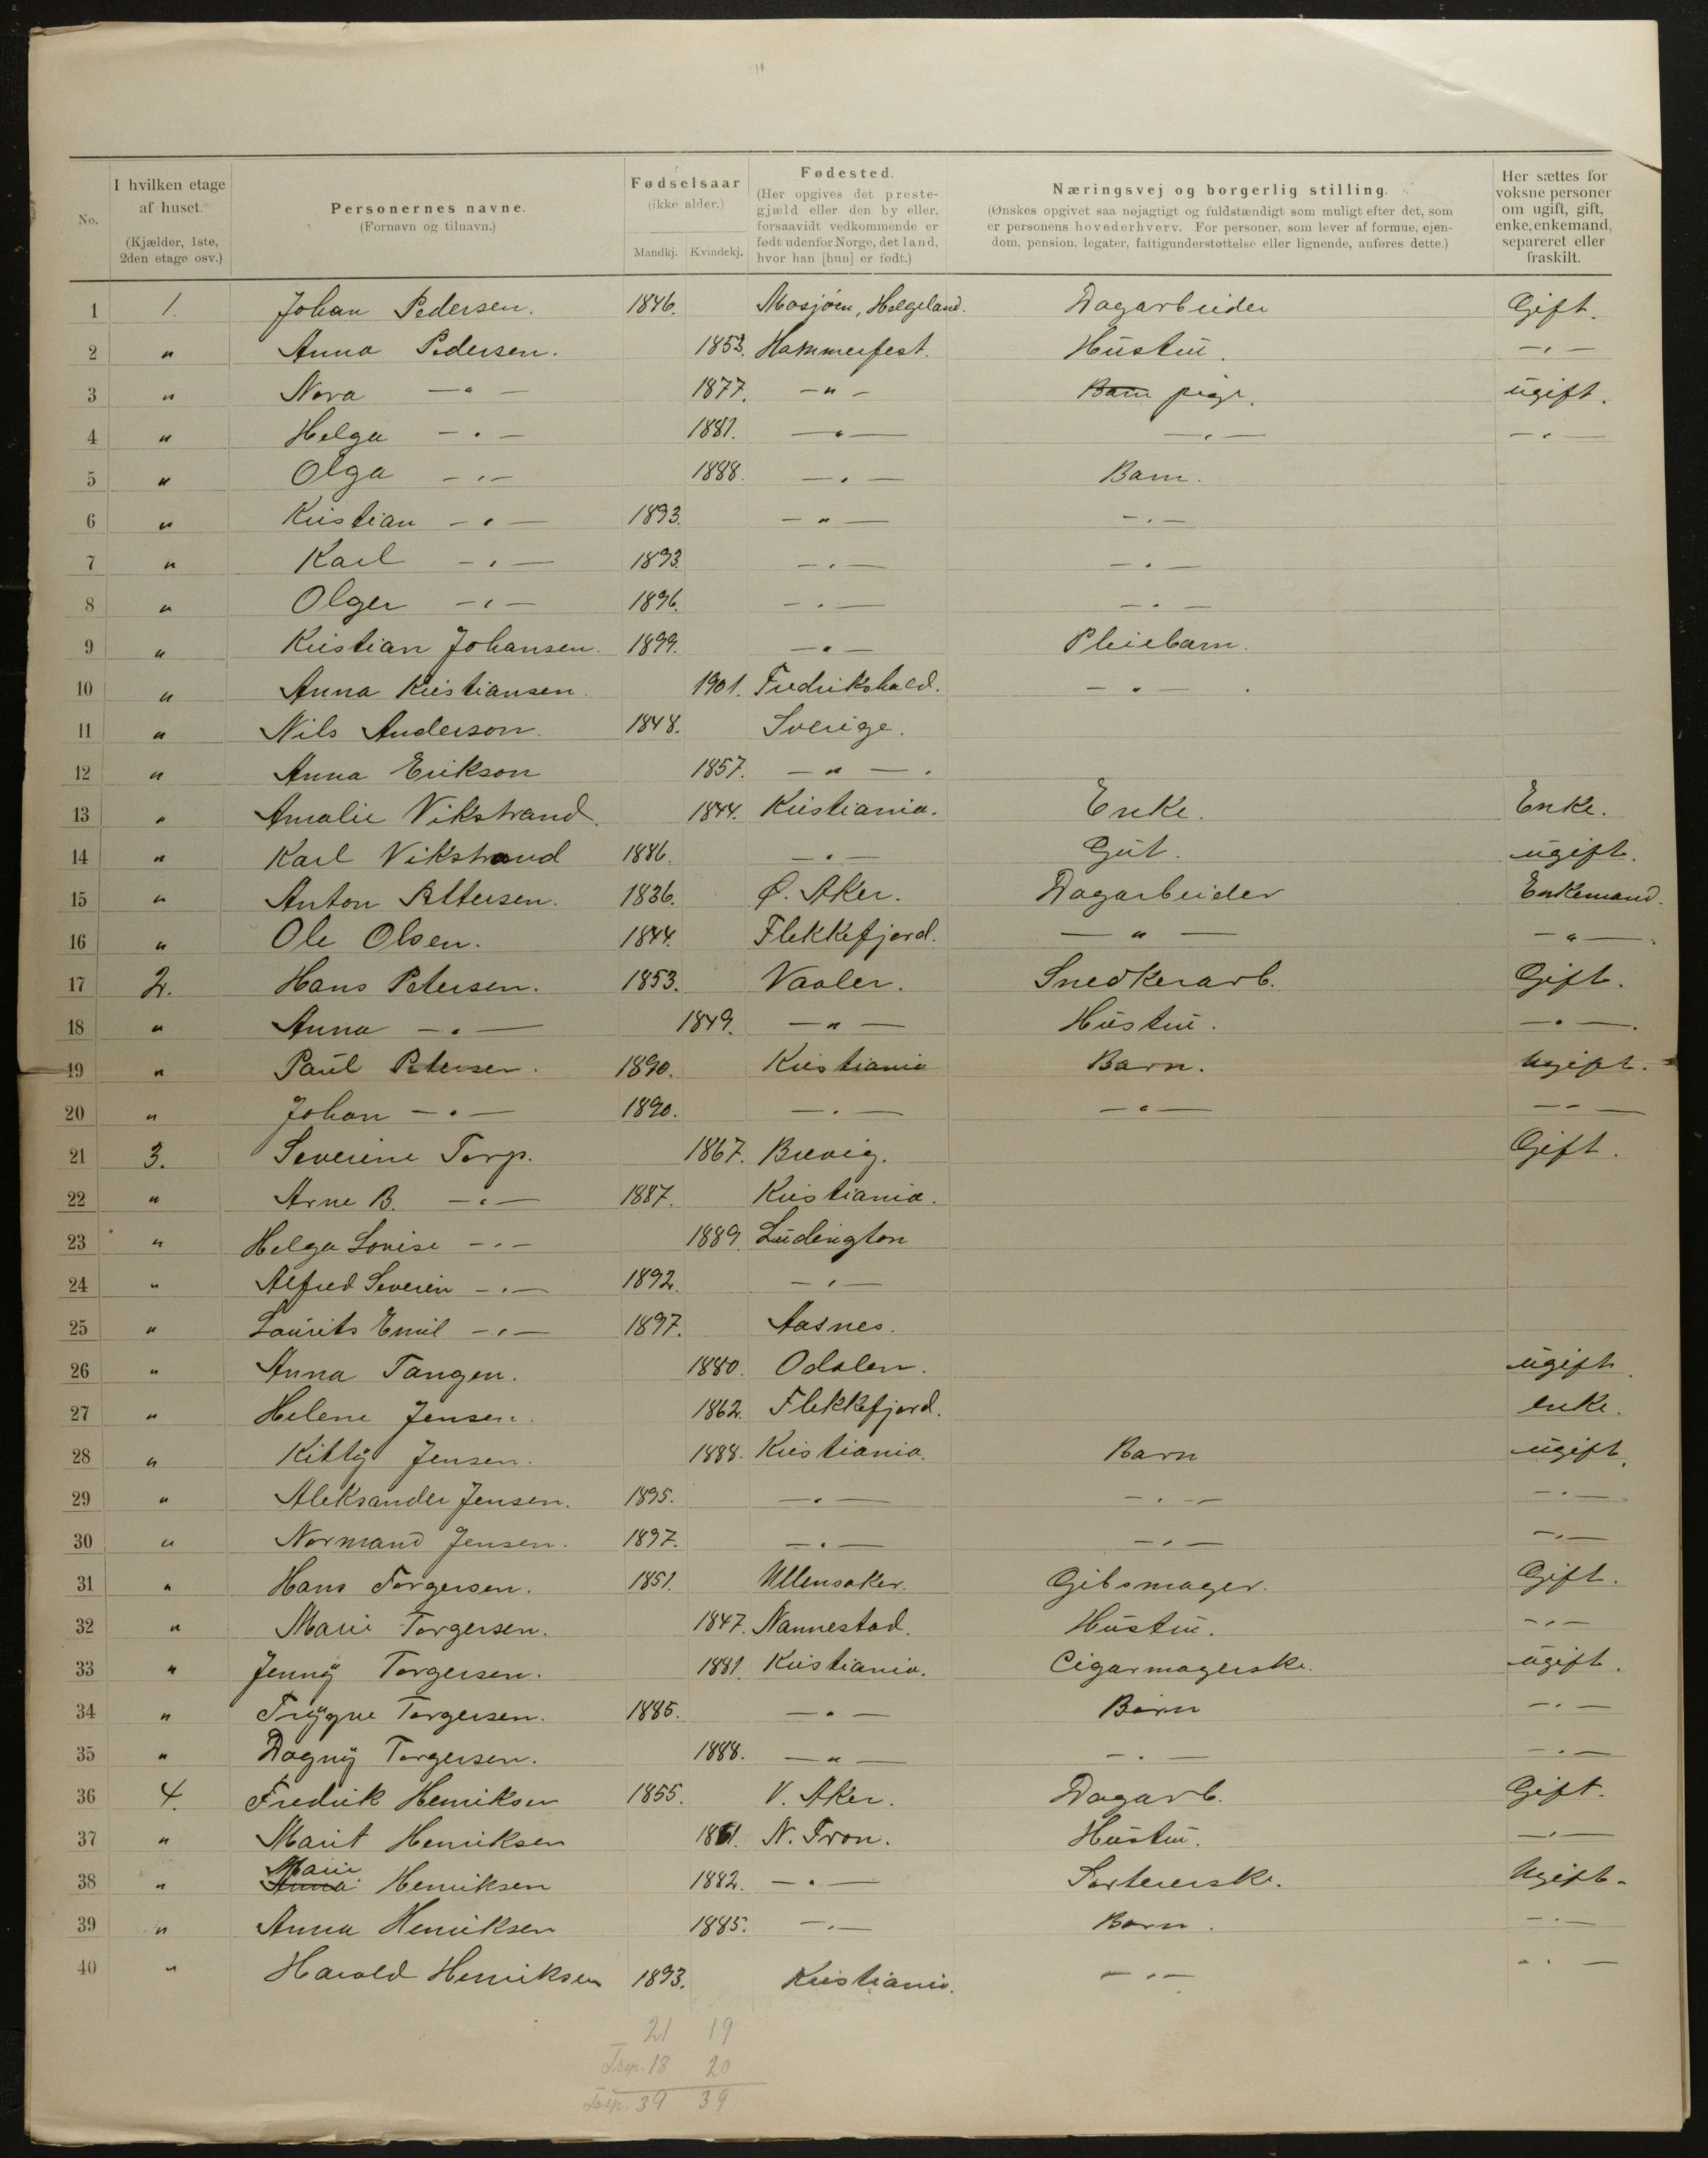 No.
I hvilken etage
af huset.
(Kjælder, 1ste,
2den etage osv.)
Personernes navne.
(Fornavn og tilnavn.)
Fødselsaar
(ikke alder.)
Mandkj. Kvindekj.
Fødested.
(Her opgives det preste-
gjæld eller den by eller,
forsaavidt vedkommende er
født udenfor Norge, det land,
hvor han [hun] er født.)
Næringsvej og borgerlig stilling.
(Ønskes opgivet saa nøjagtigt og fuldstændigt som muligt efter det, som
er personens hovederhverv. For personer, som lever af formue, ejen-
dom, pension, legater, fattigunderstøttelse eller lignende, anføres dette.)
Her sættes for
voksne personer
om ugift, gift,
enke, enkemand,
separeret eller
fraskilt.
1 1. Johan Pedersen. 1846. Mosjøen, Helgeland. Dagarbeider Gift.
2 " Anna Pedersen. 1853. Hammerfest. Hustru. —"—
3 " Nora —"— 1877. —"— Barn pige. ugift.
4 " Helga —"— 1881. —"— —"— —"—
5 " Olga —"— 1888. —"— Barn.
6 " Kristian —"— 1893. —"— —"—
7 " Karl —"— 1893. —"— —"—
8 " Olger —"— 1896. —"— —"—
9 " Kristian Johansen. 1899. —"— Pleiebarn.
10 " Anna Kristiansen. 1901. Fredrikshald. —"—
11 " Nils Anderson. 1848. Sverige.
12 " Anna Erikson 1857. —"—
13 " Amalie Vikstrand. 1844. Kristiania. Enke. Enke.
14 " Karl Vikstrand 1886. —"— Gut. ugift.
15 " Anton Pettersen. 1836. Ø. Aker. Dagarbeider Enkemand.
16 " Ole Olsen. 1844. Flekkefjord. —"— —"—
17 2. Hans Petersen. 1853. Vaaler. Snedkerarb. Gift.
18 " Anna —"— 1849. —"— Hustru. —"—
19 " Paul Petersen. 1890. Kristiania Barn. Ugift.
20 " Johan —"— 1890. —"— —"— —"—
21 3. Severine Torp. 1867. Brevig. Gift.
22 " Arne B. —"— 1887. Kristiania.
23 " Helga Lovise —"— 1889. Ludington
24 " Alfred Severin —"— 1892. —"—
25 " Laurits Emil —"— 1897. Aasnes.
26 " Anna Tangen. 1880. Odalen. ugift.
27 " Helene Jensen. 1862. Flekkefjord. enke.
28 " Kitty Jensen. 1888. Kristiania. Barn ugift.
29 " Aleksander Jensen. 1895. —"— —"— —"—
30 " Normand Jensen. 1897. —"— —"— —"—
31 " Hans Torgersen. 1851. Ullensaker. Gibsmager. Gift.
32 " Marie Torgersen. 1847. Nannestad. Hustru. —"—
33 " Jenny Torgersen. 1881. Kristiania. Cigarmagerske. ugift.
34 " Trygve Torgersen. 1885. —"— Barn —"—
35 " Dagny Torgersen. 1888. —"— —"— —"—
36 4. Fredrik Henriksen 1855. V. Aker. Dagarb. Gift.
37 " Marit Henriksen 1861. N. Fron. Hustru. —"—
Marie
38 " Anna Henriksen 1882. —"— Sortererske. Ugift.
39 " Anna Henriksen 1885. —"— Barn. —"—
40 " Harald Henriksen 1893. Kristiania. —"— —"—
21 19
Trsp. 18 20
Trsp. 39 39